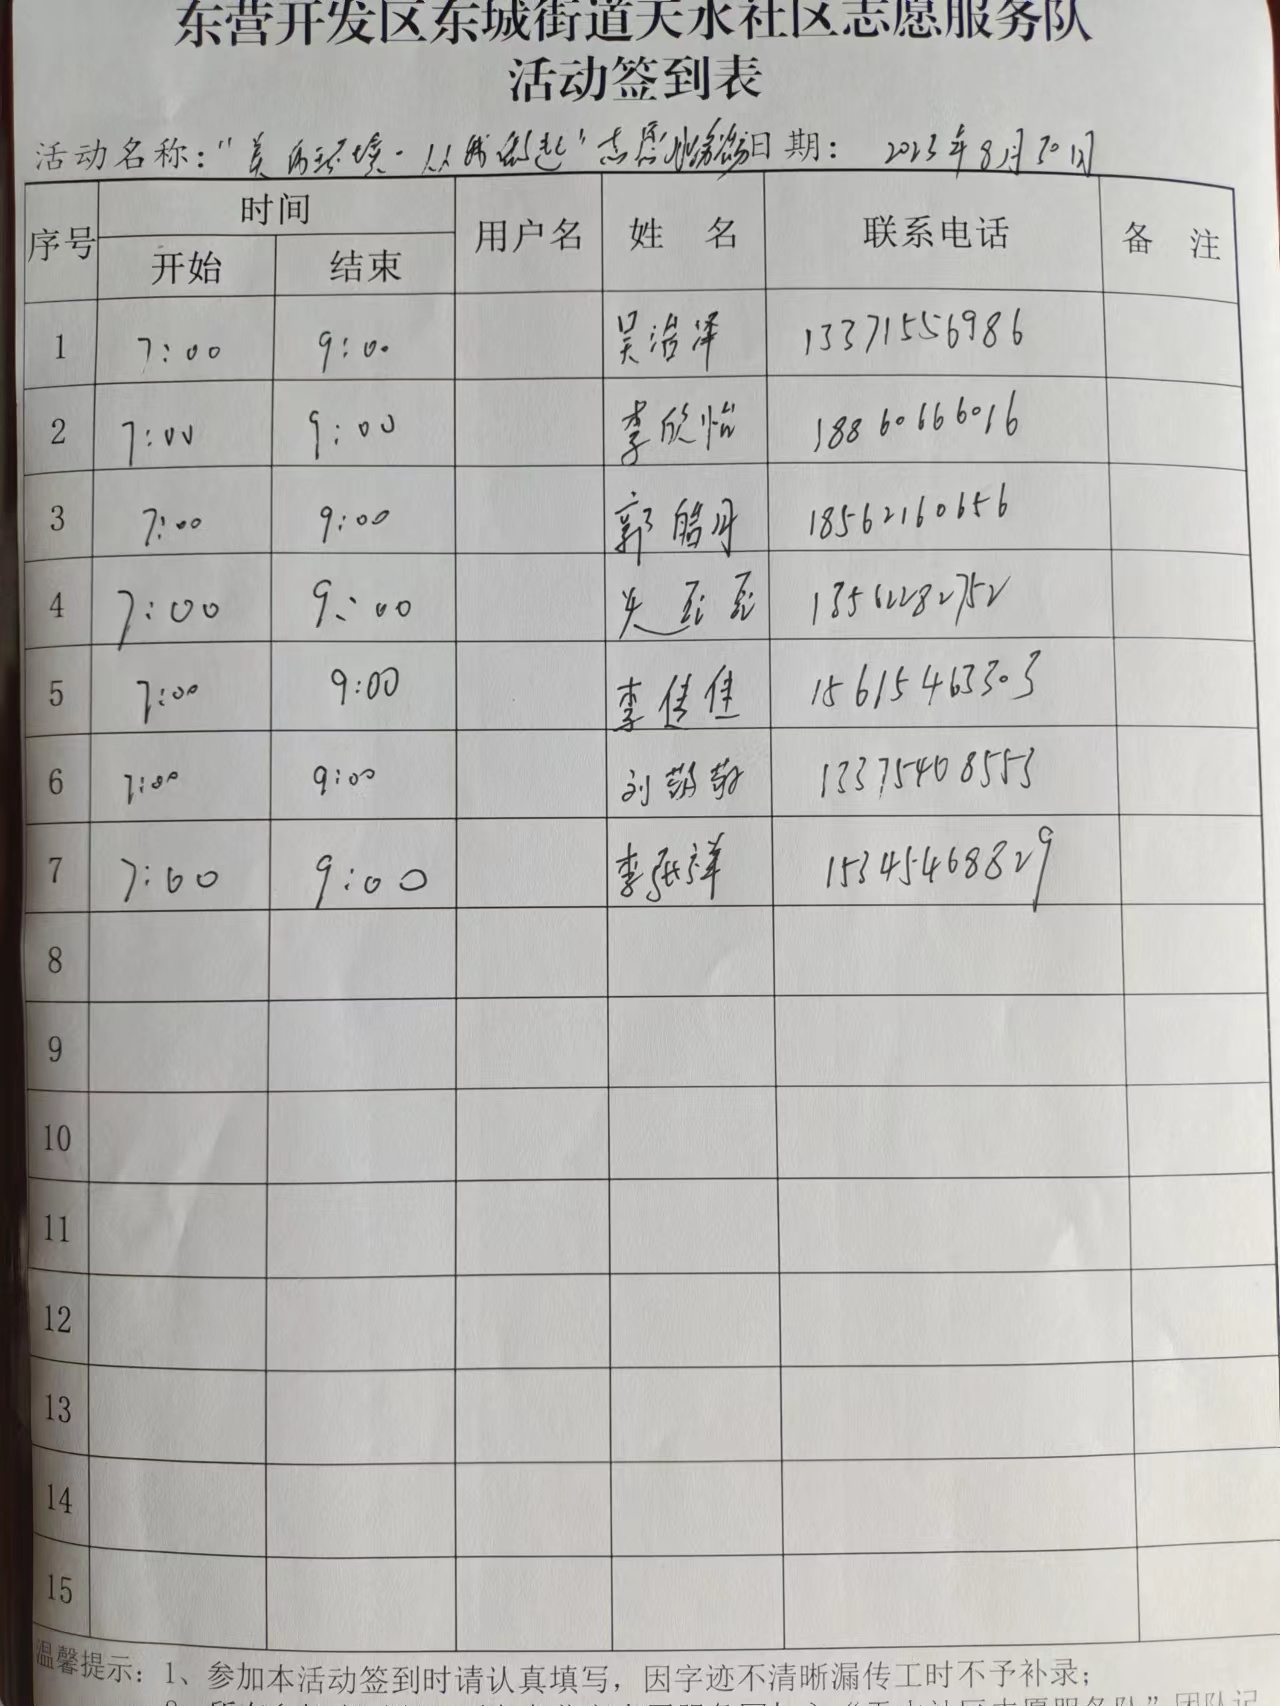 东营开发区东城街道天水社区志愿服务队
活动签到表
活动名称：“美丽环境·从我做起”志愿服务活动 日期： 2023年8月30日
序号 时间 用户名 姓 名 联系电话 备 注
开始 结束
1 7:00 9:00 吴浩泽 13371556986
2 7:00 9:00 李欣怡 18860666016
3 7:00 9:00 郭皓月 18562160656
4 7:00 9:00 13561282752
5 7:00 9:00 李佳佳 15615463303
6 7:00 9:00 刘萌萌 13375408553
7 7:00 9:00 李延祥 15345468829
8
9
10
11
12
13
14
15
温馨提示：1、参加本活动签到时请认真填写，因字迹不清晰漏传工时不予补录；